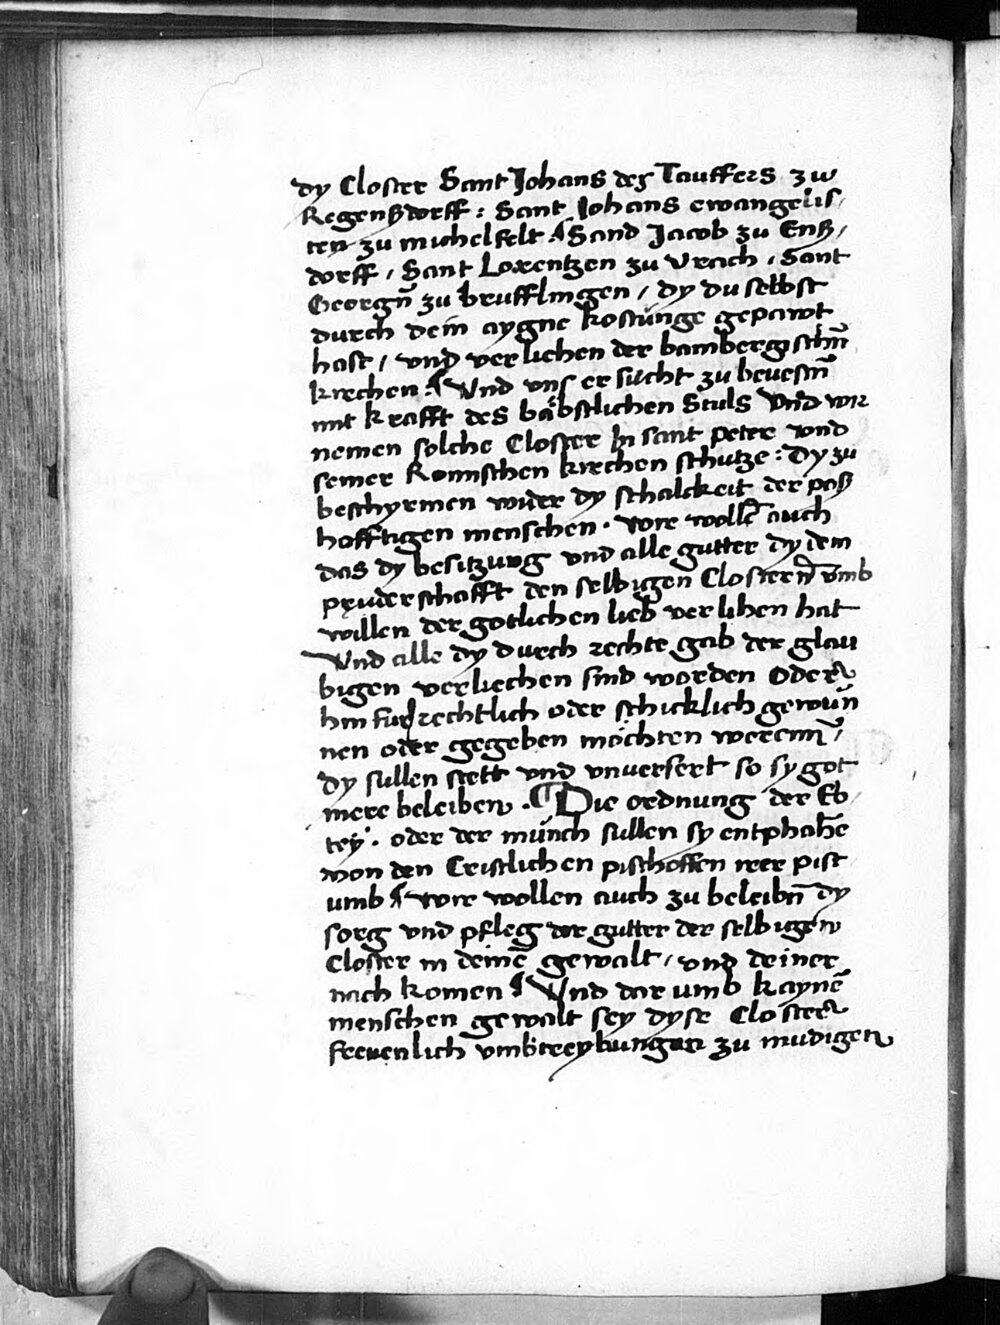 dy Closter Sant Johans des Tauffers zw
Regenßdorff : Sant Johans ewangelis/
ten zu michelfelt . Sand Jacob zu Enß/
dorff / Sant Lorentzen zu Vrach . Sant
Georgn̄ zu brufflingen / dy du selbst
durch dein aygne kostunge gepawt
hast / vnd verlichen der bambergischn̄
kirchen . Vnd vns ersucht zu bevestn̄
mit krafft des bäbstlichen Stuls Vnd wir
nemen solche Closter In sant peter vnd
seiner Romischen kirchen schutze : Dy zu
beschyrmen wider dy schalckeit der poß
hafftigen menschen . wire wollē auch
das dy besitzung vnd alle gutter dy dein
pruderschafft den selbigen Clostern̄ vmb
willen der gotlichen lieb verlihen hat
Vnd alle dy durch rechte gab der glau
bigen verliechen sind worden Oder
hin fur rechtlich oder schicklich gewun̄
nen oder gegeben möchten werenn̄ /
dy sullen stett vnd vnuersert so sy got
mere beleiben . Die ordnung der Eb
tey . oder der münch sullen sy entphahē
von den Cristlichen pischoffen irer pist
umb wire wollen auch zu beleibn̄ dy
sorg vnd pfleg der gutter der selbigen
Closter in deinē gewalt / vnd deiner
nach komen Vnd dar umb kaynē
menschen gewalt sey dyse Closter
freuenlich vmbtreybungen zu mudigen